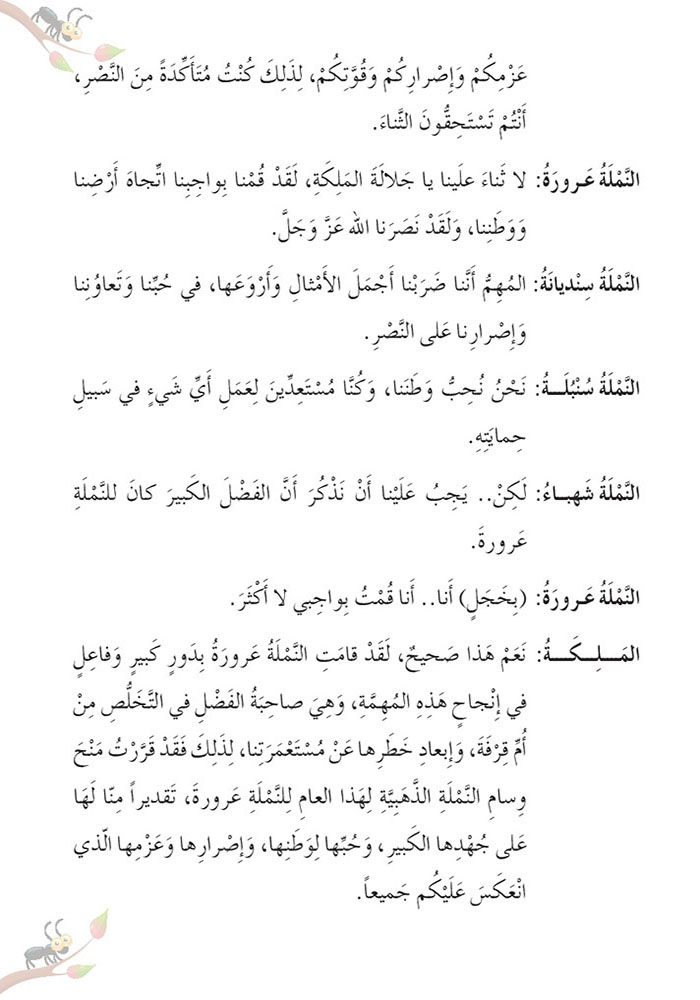 عَزْمِكُمْ وَإِصْرارِكُمْ وَقُوَّتِكُمْ، لِذَلِكَ كُنْتُ مُتَأَكِّدَةً مِنَ النَّصْرِ،
أَنْتُمْ تَسْتَحِقُّونَ الثَّناءَ.
النَّمْلَةُ عَـرورَةُ: لا ثَناءَ علَينا يا جَلالَةَ المَلِكَةِ، لَقَدْ قُمْنا بِواجِبِنا اتِّجاهَ أَرْضِنا
وَوَطَنِنا، وَلَقَدْ نَصَرَنا الله عَزَّ وَجَلَّ.
النَّمْلَةُ سِنْديانَةُ: المُهِمُّ أَنَّنا ضَرَبْنا أَجْمَلَ الأَمْثالِ وَأَرْوَعَها، في حُبِّنا وَتَعاوُنِنا
وَإِصْرارِنا عَلى النَّصْرِ.
النَّمْلَةُ سُنْبُلَـــةُ: نَحْنُ نُحِبُّ وَطَنَنا، وَكُنَّا مُسْتَعِدِّينَ لِعَمَلِ أَيِّ شَيءٍ في سَبيلِ
حِمايَتِهِ.
النَّمْلَةُ شَهبـاءُ: لَكِنْ.. يَجِبُ عَلَيْنا أَنْ نَذْكُرَ أَنَّ الفَضْلَ الكَبيرَ كانَ للنَّمْلَةِ
عَرورةَ.
النَّمْلَةُ عَـرورَةُ: (بِخَجَلٍ) أَنا.. أَنا قُمْتُ بِواجِبي لا أَكْثَرَ.
المَـــلِـكَـــةُ: نَعَمْ هَذا صَحيحٌ، لَقَدْ قامَتِ النَّمْلَةُ عَرورَةُ بِدَورٍ كَبيرٍ وَفاعِلٍ
في إِنْجاحِ هَذِهِ المُهِمَّةِ، وَهِيَ صاحِبَةُ الفَضْلِ في التَّخَلُّصِ مِنْ
أُمِّ قِرْفَةَ، وَإِبعادِ خَطَرِها عَنْ مُسْتَعْمَرَتِنا، لِذَلِكَ فَقَدْ قَرَّرْتُ مَنْحَ
وِسامِ النَّمْلَةِ الذَّهَبِيَّةِ لِهَذا العامِ لِلنَّمْلَةِ عَرورةَ، تَقديراً مِنّا لَهَا
عَلى جُهْدِها الكَبيرِ، وَحُبِّها لِوَطَنِها، وَإِصْرارِها وَعَزْمِها الّذي
انْعَكَسَ عَلَيْكُم جَميعاً.